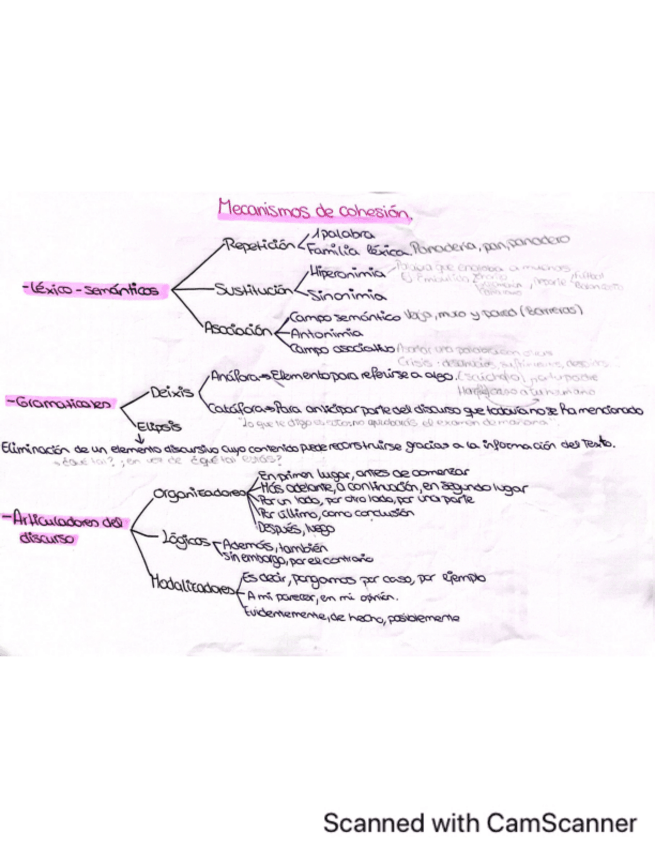 Mecanismos de cohesión.
- Léxico-semánticos
Repetición
1 palabra
Familia léxica. Panadería, pan, panadero
Sustitución
Hiperonimia - que engloba a muchos
Sinonimia
Asociación
Campo semántico Valla, muro y pared (Barreras)
Antonimia
Campo asociativo
Crisis:
- Gramaticales
Deixis
Anáfora → Elemento para referirse a algo.
Catáfora → Para anticipar parte del discurso que todavía no se ha mencionado
"Lo que te digo es esto: no aprobarás el examen de mañana".
Elipsis
Eliminación de un elemento discursivo cuyo contenido puede reconstruirse gracias a la información del Texto.
¿Qué tal?, en vez de ¿qué tal estás?
- Articuladores del discurso
Organizadores
En primer lugar, antes de comenzar
Más adelante, a continuación, en segundo lugar
Por un lado, por otro lado, por una parte
Por último, como conclusión
Después, luego
Lógicos
Además, también
Sin embargo, por el contrario
Modalizadores
Es decir, pongamos por caso, por ejemplo
A mi parecer, en mi opinión.
Evidentemente, de hecho, posiblemente
Scanned with CamScanner